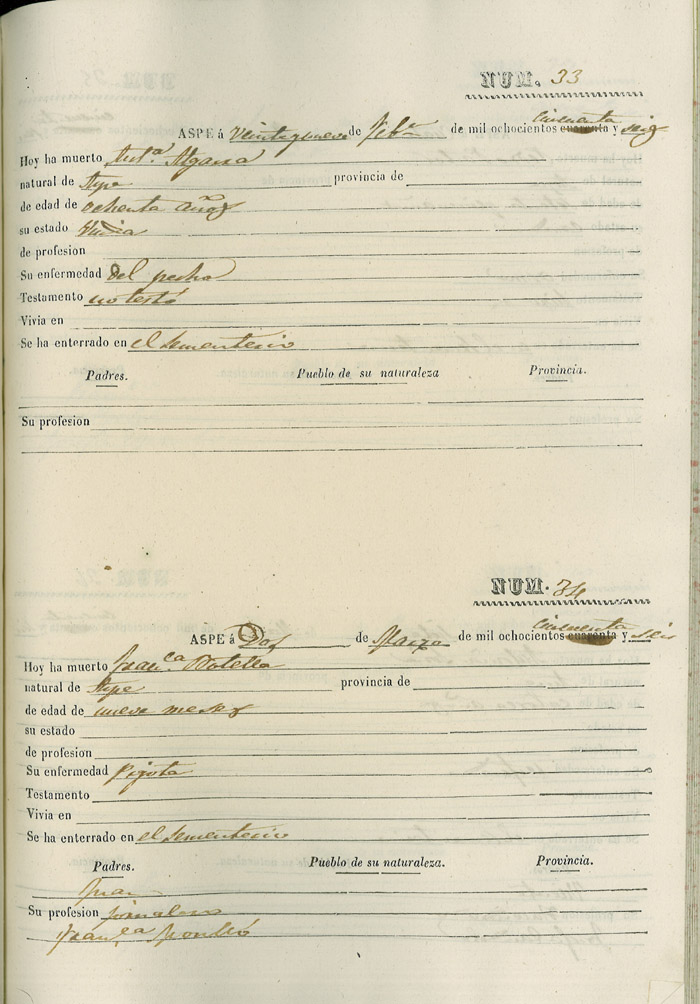 NUM. 33
ASPE á Veintinueve de Febº de mil ochocientos cincuenta cuarenta y seis
Hoy ha muerto Antª
natural de Aspe provincia de
de edad de ochenta años
su estado Viuda
de profesion
Su enfermedad del pecho
Testamento no testó
Vivia en
Se ha enterrado en el Sementerio
Padres. Pueblo de su naturaleza Provincia.
Su profesion
NUM. 34
ASPE á Dos de Marzo de mil ochocientos cincuenta cuarenta y seis
Hoy ha muerto Franca Botella
natural de Aspe provincia de
de edad de nueve meses
su estado
de profesion
Su enfermedad Pijota
Testamento
Vivia en
Se ha enterrado en el Sementerio
Padres. Pueblo de su naturaleza. Provincia.
Juan
Su profesion jornalero
Franca